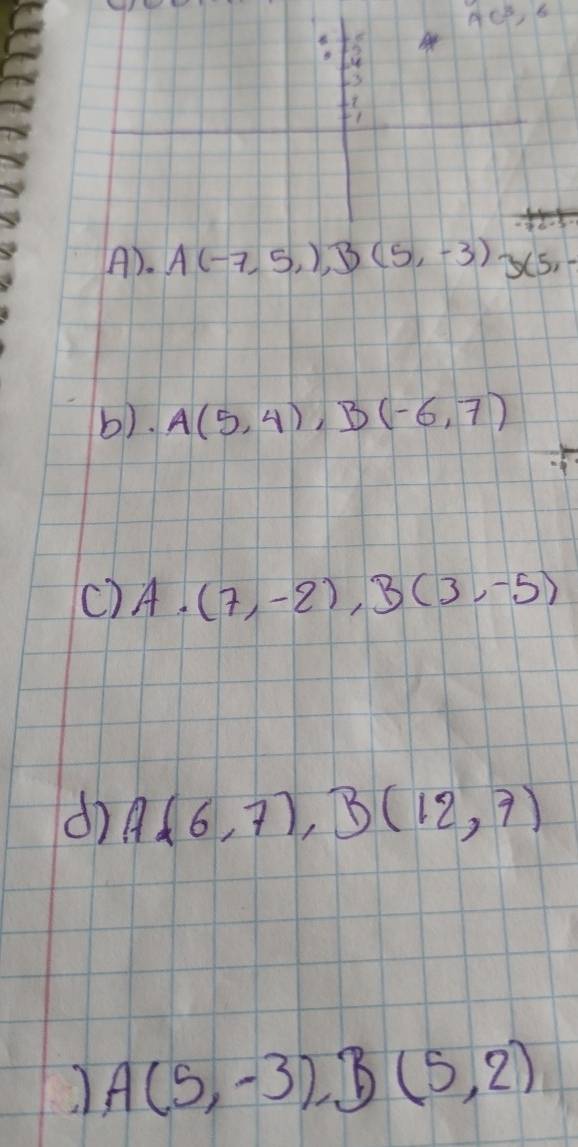 A(3, 6
A). A(-7, 5,), B(5, -3) B(5, -
b). A(5, 4), B(-6, 7)
c) A. (7, -2), B(3, -5)
d) A(6, 7), B(12, 7)
.) A(5, -3), B(5, 2)